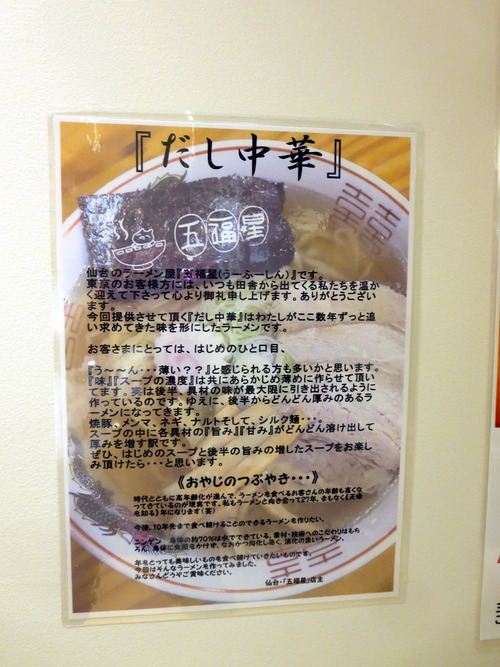 『だし中華』
五福星
仙台のラーメン屋『五福星(うーふーしん)』です。
東京のお客様方には、いつも田舎から出てくる私たちを温か
く迎えて下さって心より御礼申し上げます。ありがとうござい
ます。
今回提供させて頂く『だし中華』はわたしがここ数年ずっと追
い求めてきた味を形にしたラーメンです。
お客さまにとっては、はじめのひと口目、
『う～～ん・・・薄い??』と感じられる方も多いかと思います。
『味』『スープの濃度』は共にあらかじめ薄めに作らせて頂い
てます。実は後半、具材の味が最大限に引き出されるように
作っているのです。ゆえに、後半からどんどん厚みのあるラ
ーメンになってきます。
焼豚、メンマ、ネギ、ナルトそして、シルク麺・・・。
スープの中に各具材の『旨み』『甘み』がどんどん溶け出して
厚みを増す訳です。
ぜひ、はじめのスープと後半の旨みの増したスープをお楽し
み頂けたら・・・と思います。
《おやじのつぶやき・・・》
時代とともに高年齢化が進んで、ラーメンを食べるお客さんの年齢も高くな
ってきているのが現実です。私もラーメンと向き合って27年、まもなく《天命
を知る》年になります(笑)
今後、10年先まで食べ続けることのできるラーメンを作りたい。
ニンゲン 身体の約70%は水でできている。素材・技術へのこだわりはもち
ろん、身体に負担をかけず、なおかつ同化し易く、消化の良いラーメン。
年をとっても美味しいものを食べ続けていきたいものです。
今回はそんなラーメンを作ってみました。
みなさんどうぞご賞味ください。
仙台・「五福星」店主